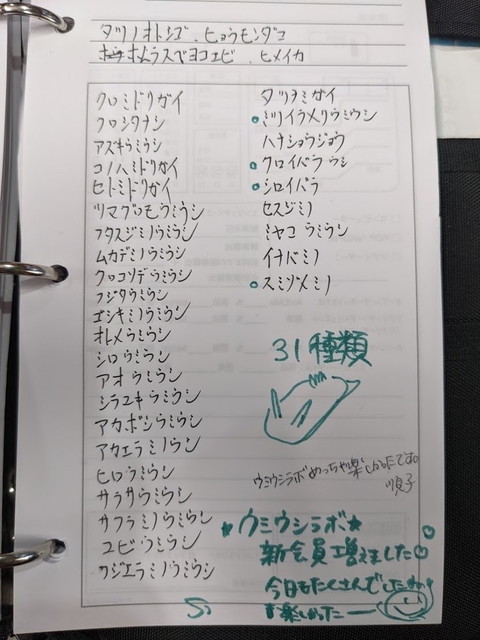 タツノオトシゴ、ヒョウモンダコ
ホムラスベヨコエビ、ヒメイカ
クロミドリガイ
クロシタナシ
アズキウミウシ
コノハミドリガイ
ヒトミドリガイ
ツマグロモウミウシ
フタスジミノウミウシ
ムカデミノウミウシ
クロコソデウミウシ
フジタウミウシ
エシキミノウミウシ
オトメウミウシ
シロウミウシ
アオウミウシ
シラユキウミウシ
アカボシウミウシ
アカエラミノウシ
ヒロウミウシ
サラサウミウシ
サフラミノウミウシ
ユビウミウシ
フジエラミノウミウシ
タツナミガイ
ミツイラメリウミウシ
ハナショウジョウ
クロイバラウシ
シロイバラ
セスジミノ
ミヤコウミウシ
イナバミノ
スミゾメミノ
31種類
ウミウシラボめっちゃ楽しかったですね
順子
★ウミウシラボ★
新会員増えました♡
今日もたくさんでしたね!
楽しかったー